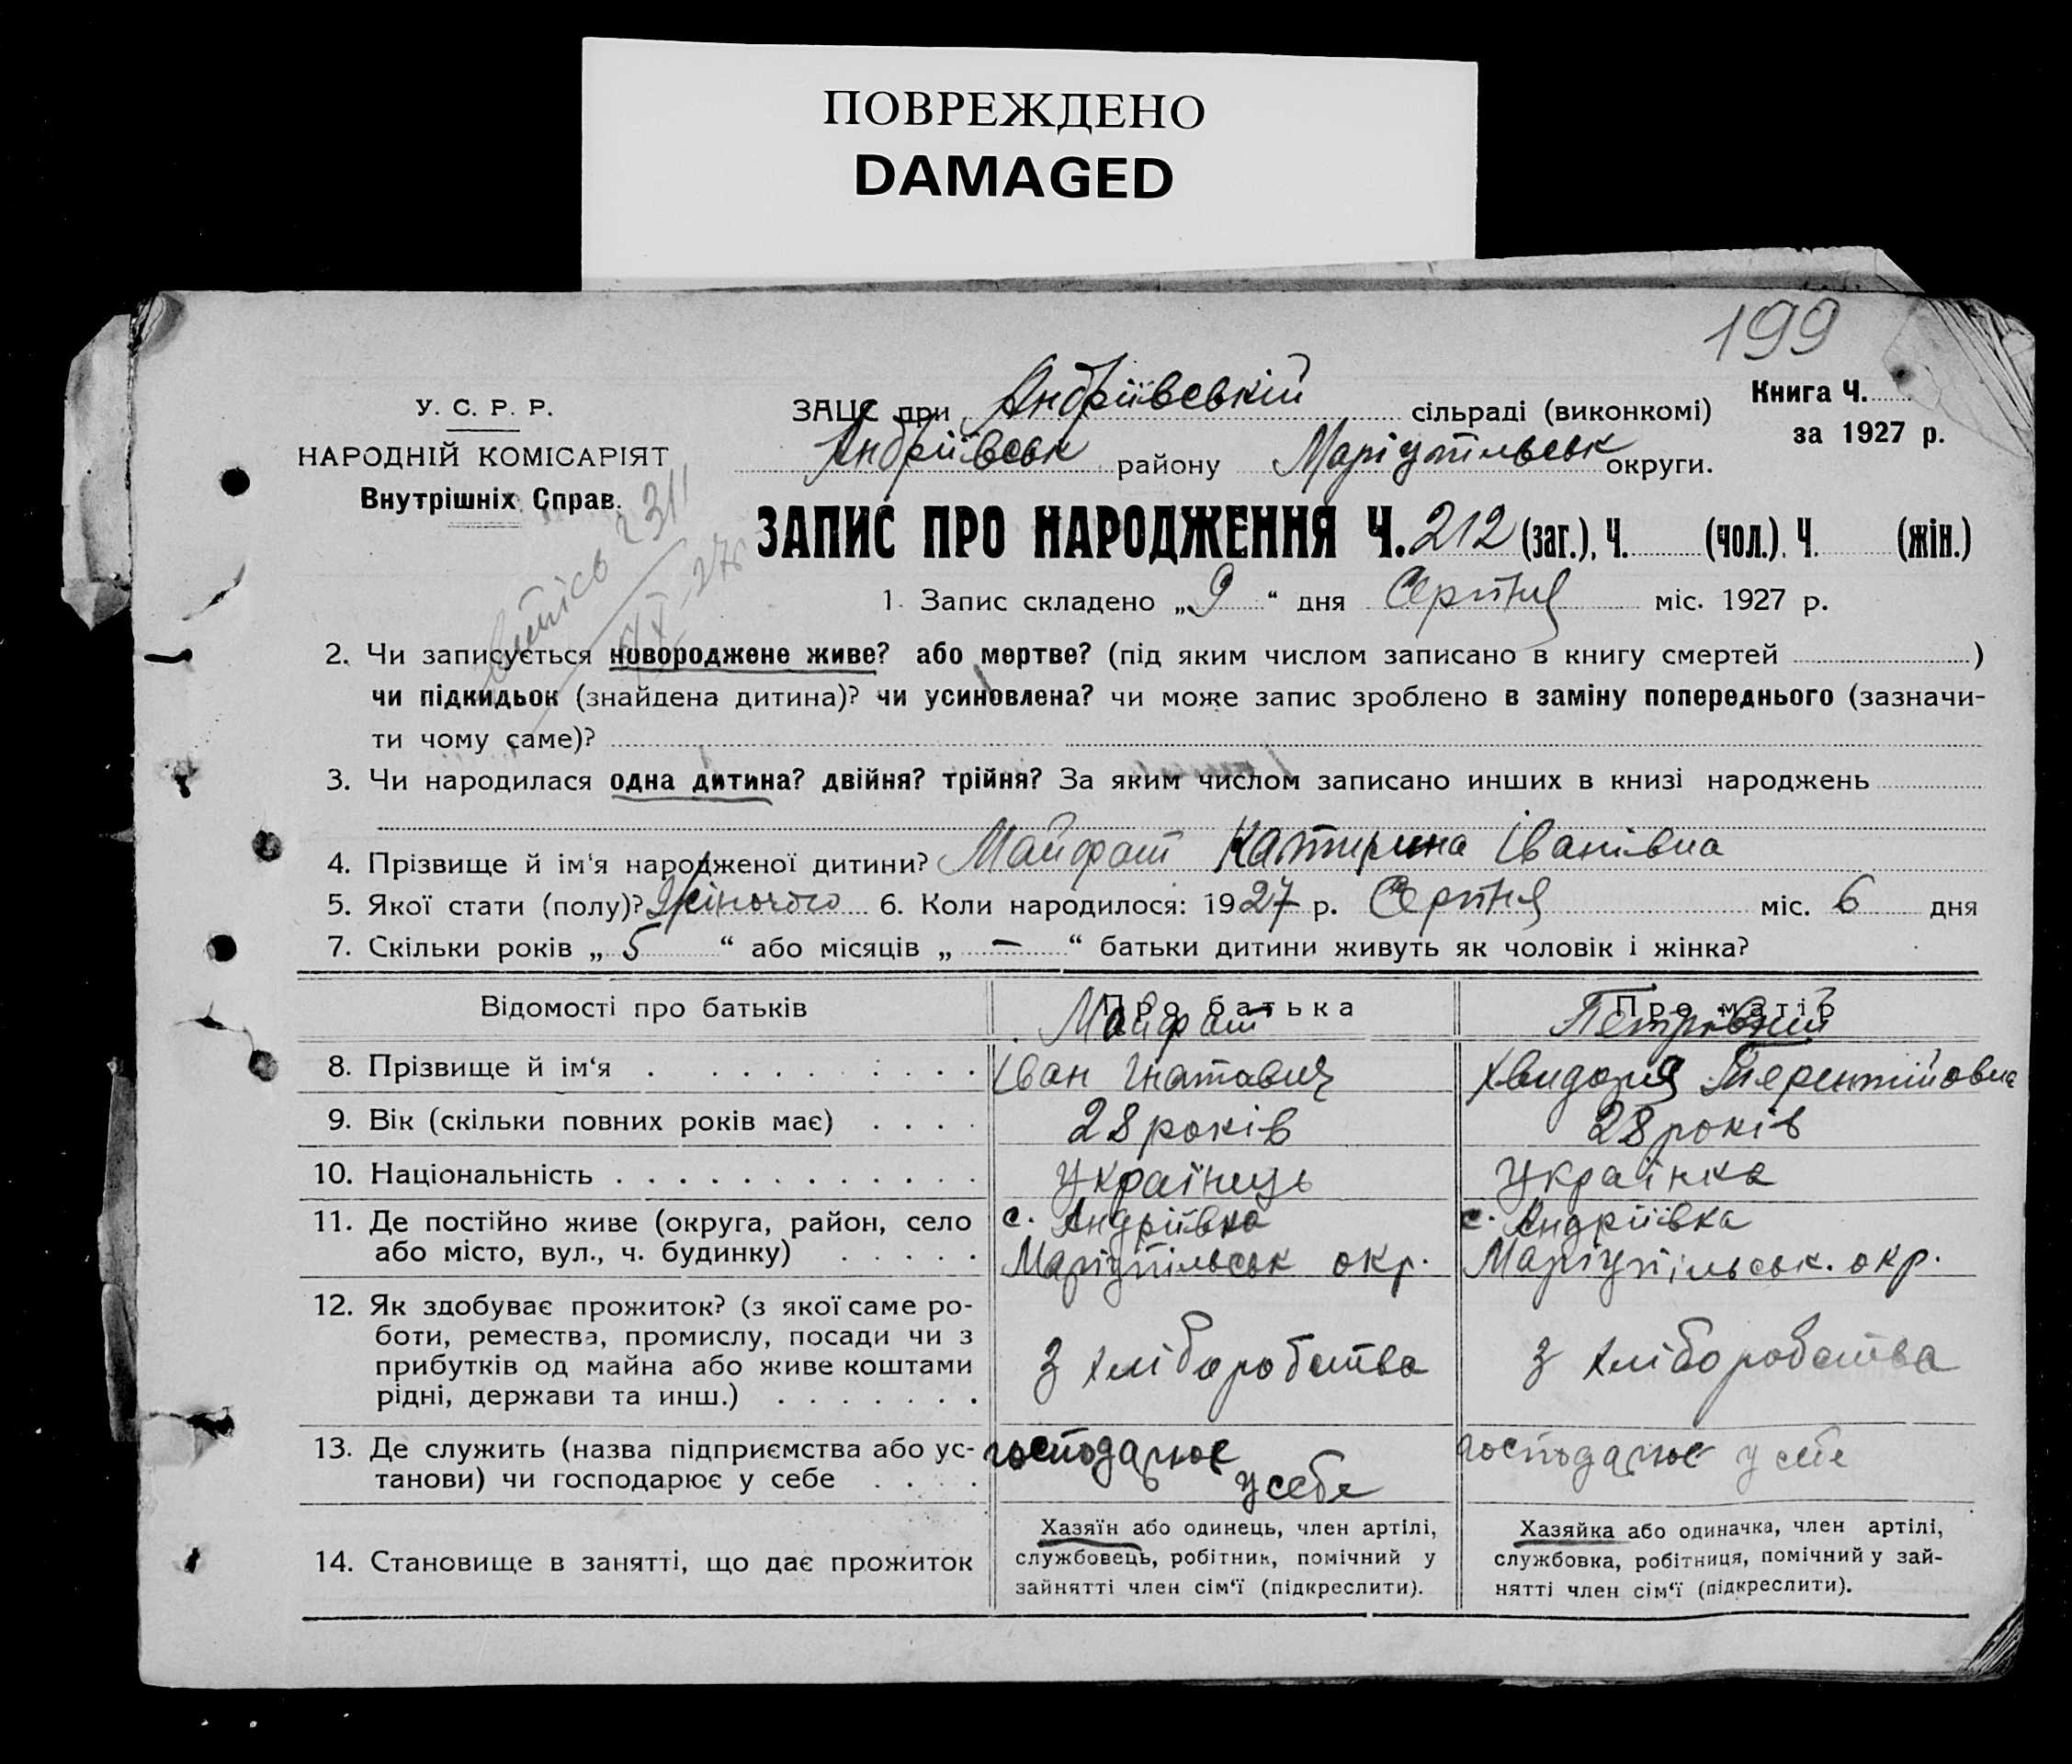 ПОВРЕЖДЕНО
DAMAGED
199
У. С. Р. Р.
НАРОДНІЙ КОМІСАРІЯТ
Внутрішніх Справ.
Витпісь 2311
27б
ЗАЦС при Андріївській сільраді (виконкомі)
Андріївськ району Маріупільськ округи.
Книга Ч.
за 1927 р.
ЗАПИС ПРО НАРОДЖЕННЯ Ч. 212 (заг.), Ч. (чол.). Ч. (жін.)
1. Запис складено „9“ дня Серпня міс. 1927 р.
2. Чи записується новороджене живе? або мертве? (під яким числом записано в книгу смертей )
чи підкидьок (знайдена дитина)? чи усиновлена? чи може запис зроблено в заміну попереднього (зазначи-
ти чому саме)?
3. Чи народилася одна дитина? двійня? трійня? За яким числом записано инших в книзі народжень
4. Прізвище й ім‘я народженої дитини? Майфат Катирина Іванівна
5. Якої стати (полу)? Жіночого 6. Коли народилося: 1927 р. Серпня міс. 6 дня
7. Скільки років „ 5 “ або місяців „ — “ батьки дитини живуть як чоловік і жінка?
Відомості про батьків Про батька Про матір
8. Прізвище й ім‘я
Майфат
Іван Гнатович
Хвидория Терентійовна
9. Вік (скільки повних років має) 28 років 28 років
10. Національність Українець Українка
11. Де постійно живе (округа, район, село
або місто, вул., ч. будинку)
с. Андріївка
Маріупільськ окр.
с. Андріївка
Маріупільськ. окр.
12. Як здобуває прожиток? (з якої саме ро-
боти, ремества, промислу, посади чи з
прибутків од майна або живе коштами
рідні, держави та инш.)
З хліборобства
З хліборобства
13. Де служить (назва підприємства або ус-
танови) чи господарює у себе
господарює
у себе
господарює у себе
14. Становище в занятті, що дає прожиток
Хазяїн або одинець, член артілі,
службовець, робітник, помічний у
зайнятті член сім‘ї (підкреслити).
Хазяйка або одиначка, член артілі,
службовка, робітниця, помічний у зай-
нятті член сім‘ї (підкреслити).